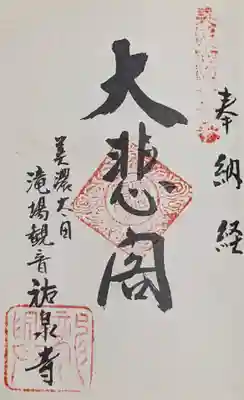 奉納経
大悲閣
美濃太田
滝場観音
祐泉寺